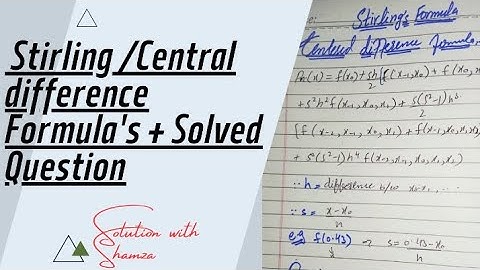 Stirling /Central
difference
Formula's + Solved
Question
Solution with
Shamza
Stirling's Formula
Centered difference formula
Pn(x) = f(x0) + sh/2 [f(x-1, x0) + f(x0, x
+ s²h² f(x-1, x0, x1) + s(s²-1)h³/2
[f(x-2, x-1, x0, x1) + f(x-1, x0, x1, x2)
+ s²(s²-1)h⁴ f(x-2, x-1, x0, x1, x2)
∵ h = difference b/w x0, x1, ...
∵ s = x - x0/h
e.g f(0.43) s = 0.43 - x0/h